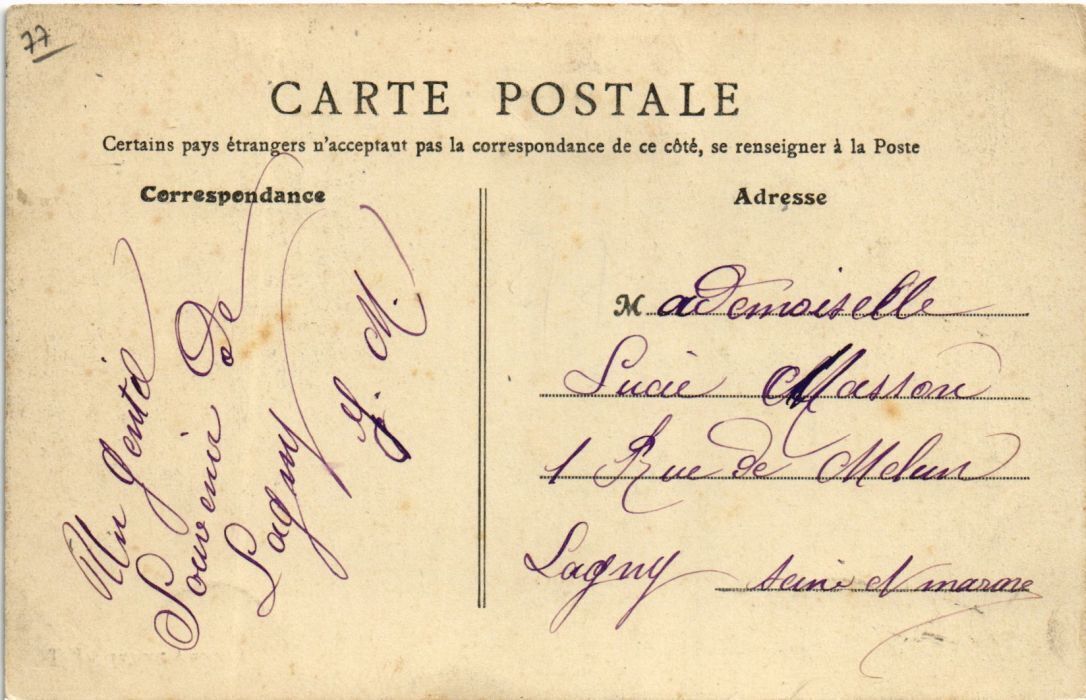 77
CARTE POSTALE
Certains pays étrangers n'acceptant pas la correspondance de ce côté, se renseigner à la Poste
Correspondance
Un Gentil
Souvenir de
Lagny
G. M.
Adresse
Mademoiselle
Lucie Masson
1 Rue de Melun
Lagny Seine et marne